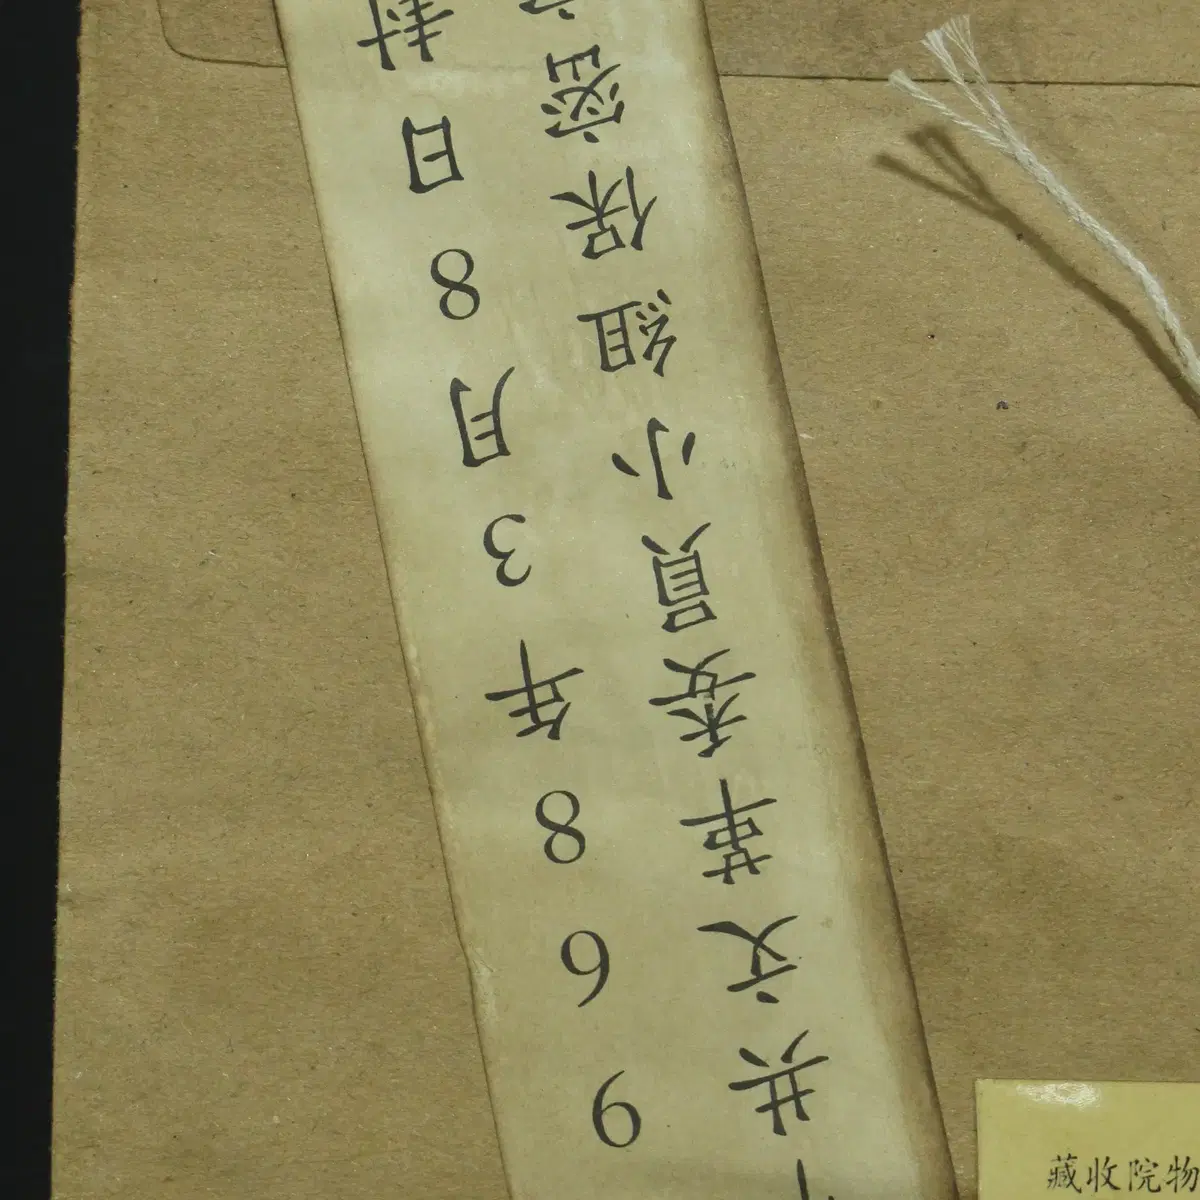 968年3月8日封
共文革委員小組保密
物院收藏